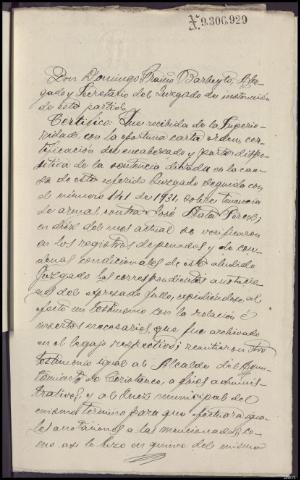 N. 9.306.929
Don Domingo Barbeyto, Abo-
gado y Secretario del Juzgado de instrucción
de este partido.
Certifico: Que recibida de la Superio-
ridad, con la oportuna carta orden, cer-
tificación del encabezado y parte dispo-
sitiva de la sentencia dictada en la cau-
sa de este referido Juzgado seguida con
el número 141 de 1931, sobre tenencia
de armas contra José
en del mes actual se verificaron
en los registros de penados y de con-
denas condicionales de este aludido
Juzgado las correspondientes anotacio-
nes del expresado fallo, expidiéndose al
efecto un testimonio con la relación é
insertos necesarios que fué archivado
en el legajo respectivo; remitieron
testimonio igual al Alcalde del Ayun-
tamiento de a fines adminis-
trativos, y al Juez municipal del
mismo término para que efectuara igua-
les anotaciones a las mencionadas,
como así lo hizo en quince del mismo